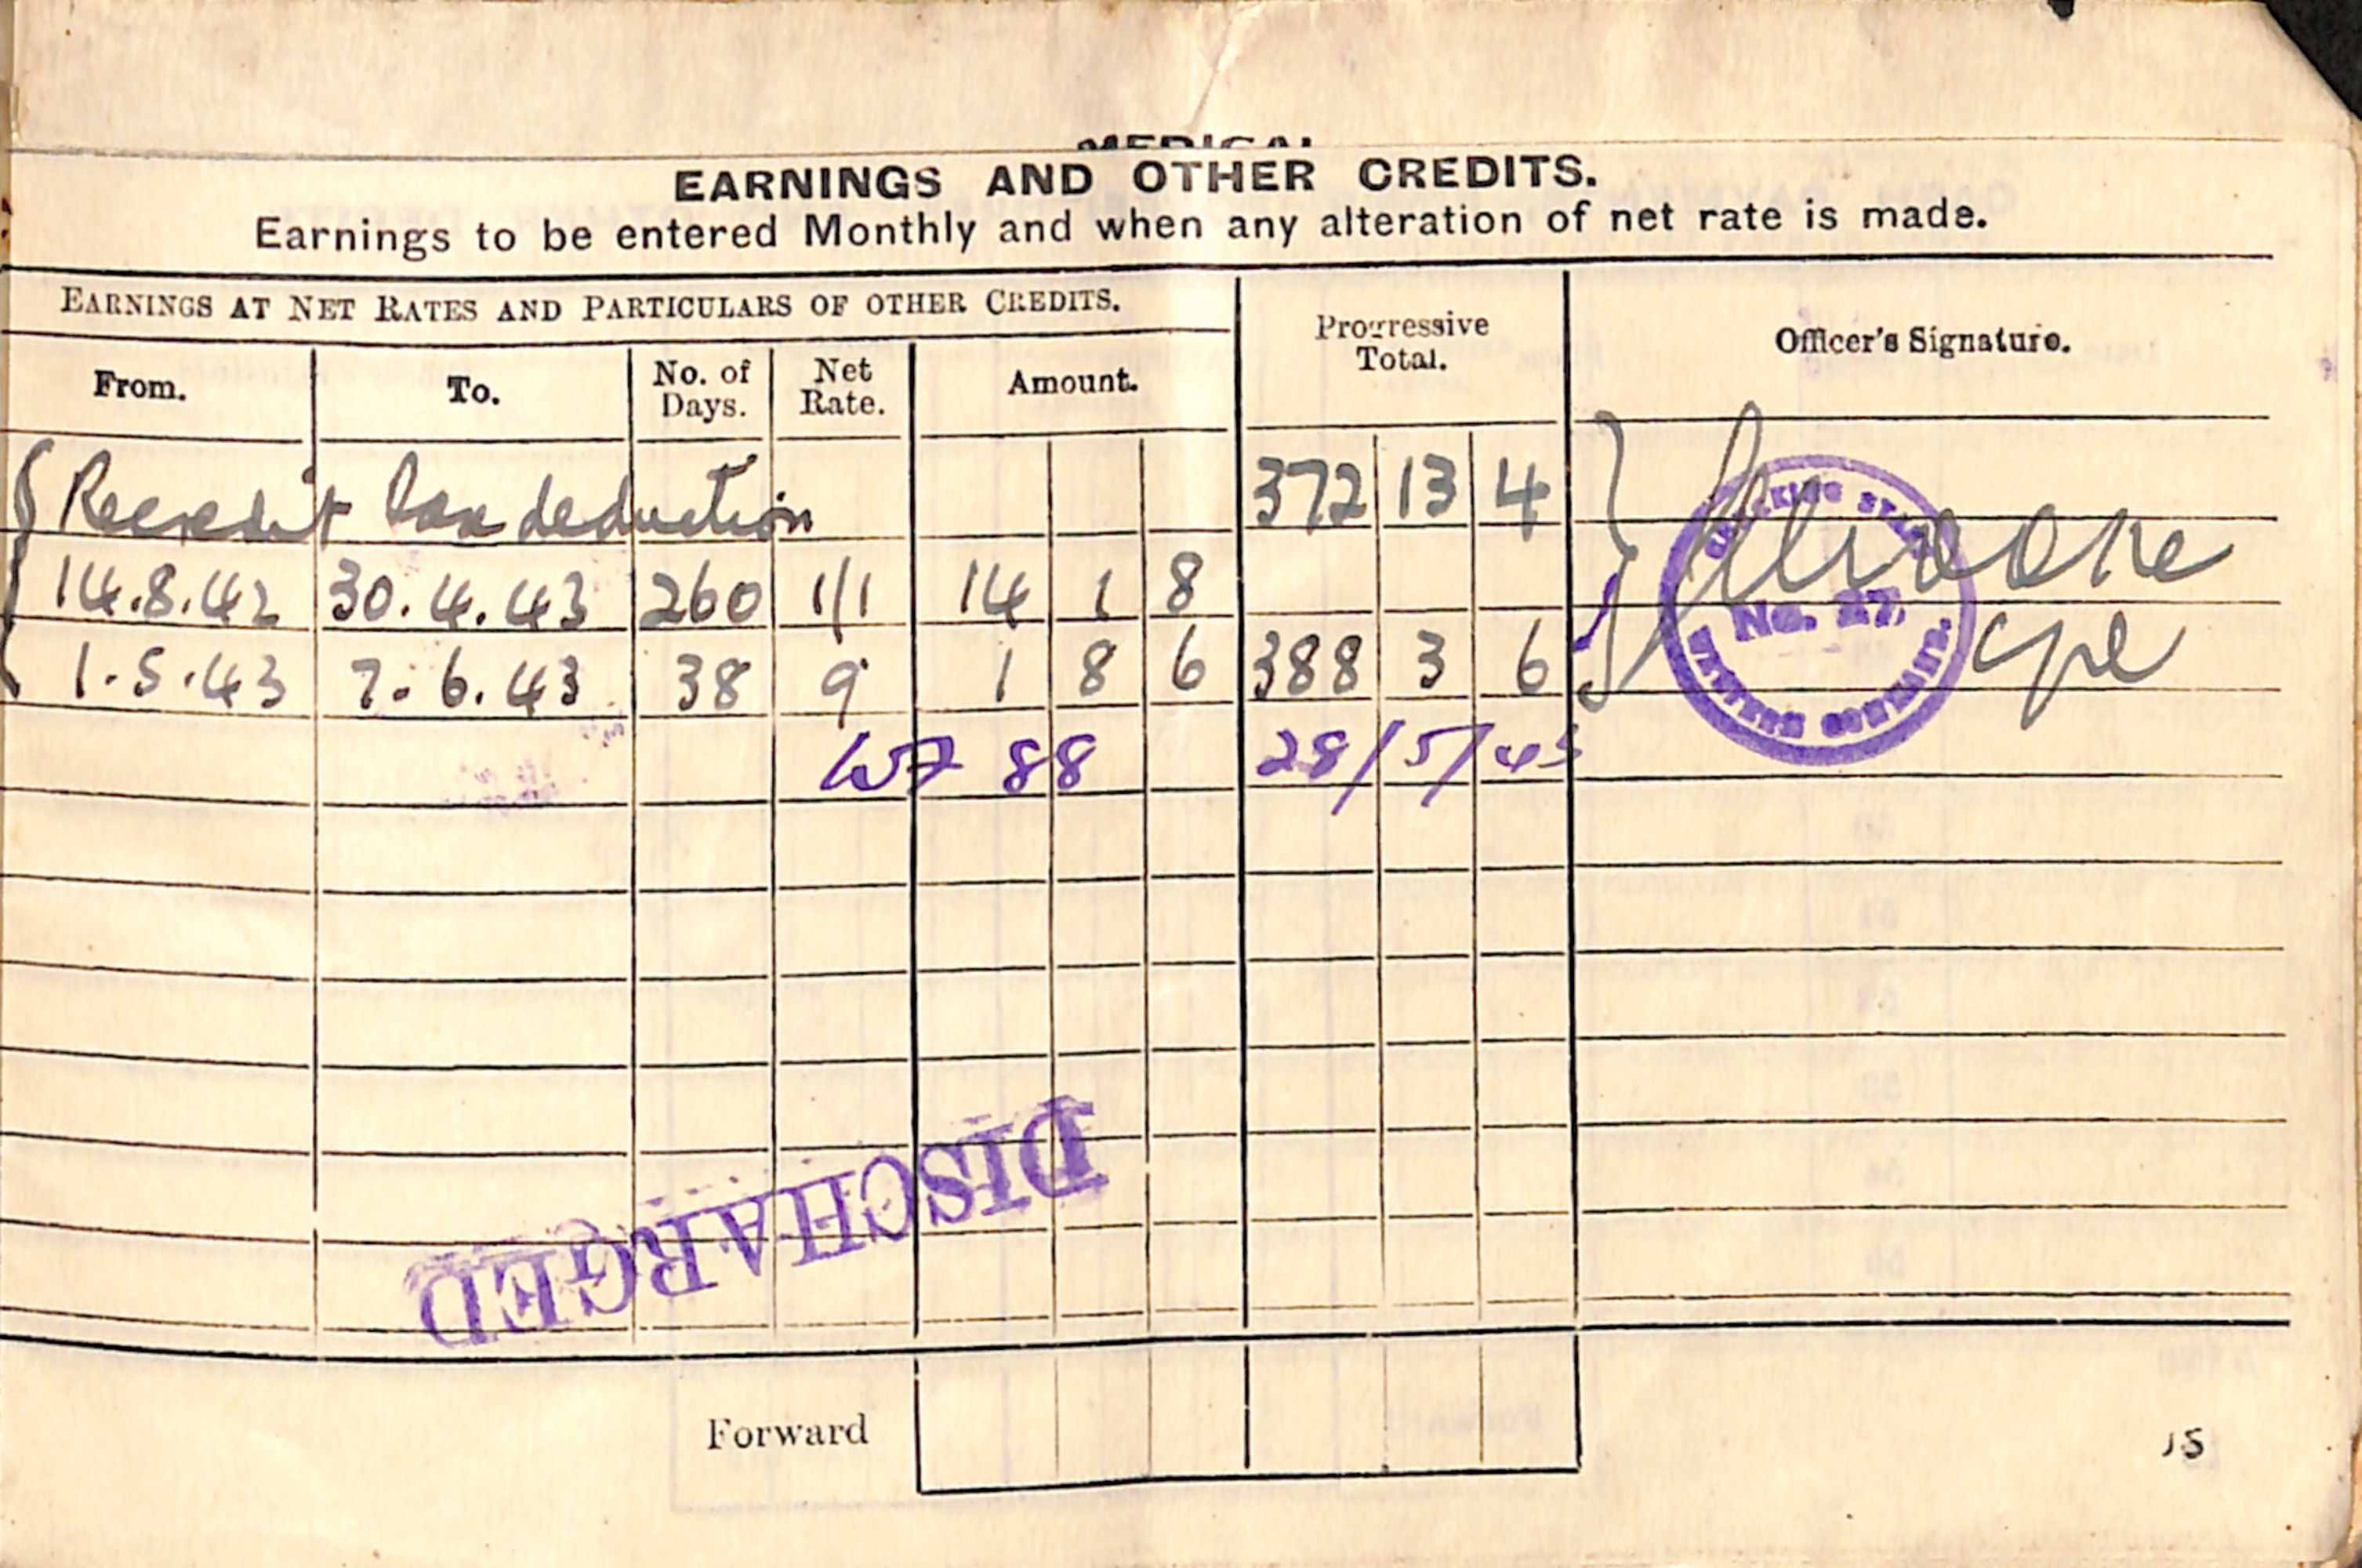 MEDICAL
EARNINGS AND OTHER CREDITS.
Earnings to be entered Monthly and when any alteration of net rate is made.
EARNINGS AT NET RATES AND PARTICULARS OF OTHER CREDITS.
Progressive Total.
Officer's Signature.
From. To. No. of Days. Net Rate. Amount.
Recredit tax deduction 372 13 4
14.8.42 30.4.43 260 1/1 14 1 8
1.5.43 7.6.43 38 9 1 8 6 388 3 6
Cpl
No. 27
88 28/5/43
DISCHARGED
Forward
15